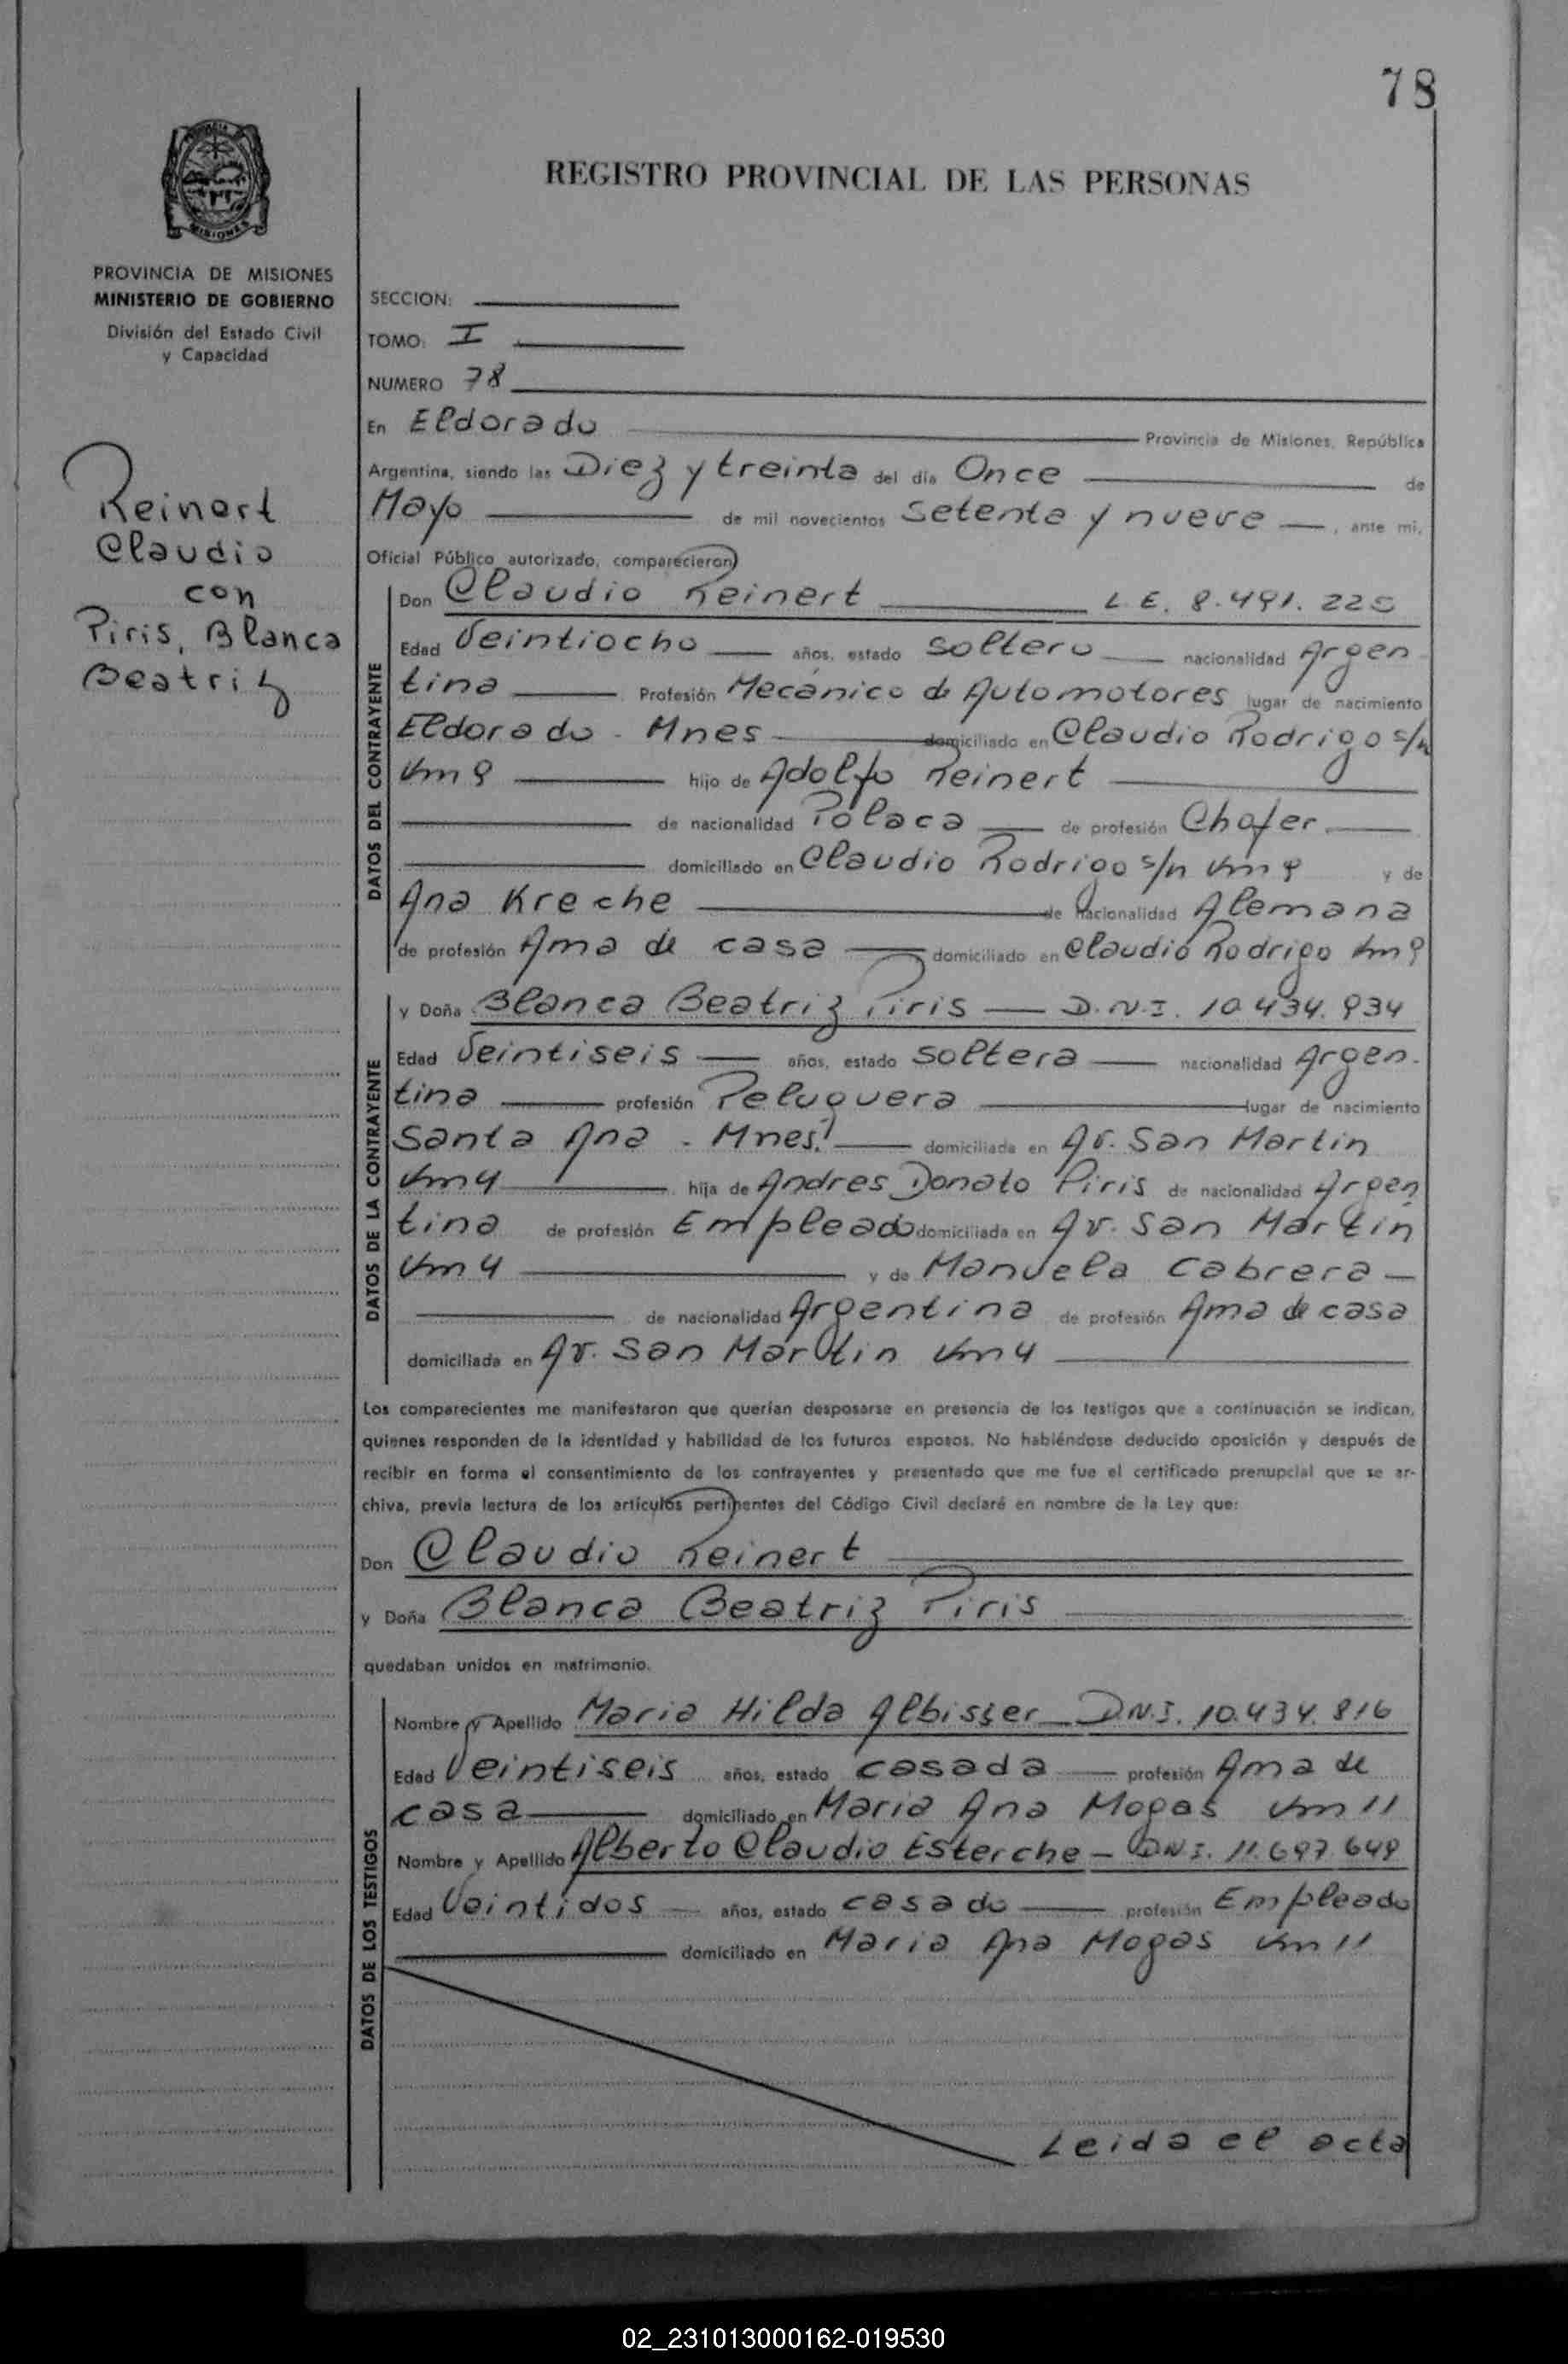 78
REGISTRO PROVINCIAL DE LAS PERSONAS
MISIONES
PROVINCIA DE MISIONES
MINISTERIO DE GOBIERNO
División del Estado Civil
y Capacidad
Reinert
Claudio
con
Piris, Blanca
Beatriz
SECCION:
TOMO: I
NUMERO 78
En Eldorado Provincia de Misiones, República
Argentina, siendo las Diez y treinta del día Once de
Mayo de mil novecientos Setenta y nueve, ante mi,
Oficial Público autorizado, comparecieron
DATOS DEL CONTRAYENTE
Don Claudio Reinert L.E. 8.491.225
Edad Veintiocho años, estado Soltero nacionalidad Argen
tina Profesión Mecánico de Automotores lugar de nacimiento
Eldorado - Mnes domiciliado en Claudio Rodrigo s/n
Km 9 hijo de Adolfo Reinert
de nacionalidad Polaca de profesión Chofer
domiciliado en Claudio Rodrigo s/n Km 9 y de
Ana Kreche de nacionalidad Alemana
de profesión Ama de casa domiciliado en Claudio Rodrigo Km 9
DATOS DE LA CONTRAYENTE
y Doña Blanca Beatriz Piris — D.N.I. 10.434.934
Edad Veintiseis años, estado Soltera nacionalidad Argen-
tina profesión Peluquera lugar de nacimiento
Santa Ana - Mnes. domiciliada en Av. San Martin
Km 4 hija de Andres Donato Piris de nacionalidad Argen
tina de profesión Empleado domiciliada en Av. San Martin
Km 4 y de Manuela Cabrera —
de nacionalidad Argentina de profesión Ama de casa
domiciliada en Av. San Martin Km 4
Los comparecientes me manifestaron que querían desposarse en presencia de los testigos que a continuación se indican,
quienes responden de la identidad y habilidad de los futuros esposos. No habiéndose deducido oposición y después de
recibir en forma el consentimiento de los contrayentes y presentado que me fue el certificado prenupcial que se ar-
chiva, previa lectura de los artículos pertinentes del Código Civil declaré en nombre de la Ley que:
Don Claudio Reinert
y Doña Blanca Beatriz Piris
quedaban unidos en matrimonio.
DATOS DE LOS TESTIGOS
Nombre y Apellido Maria Hilda Albisser D.N.I. 10.434.816
Edad Veintiseis años, estado casada profesión Ama de
casa domiciliado en Maria Ana Mogas Km 11
Nombre y Apellido Alberto Claudio Esterche — D.N.I. 11.697.649
Edad Veintidos años, estado casado profesión Empleado
domiciliado en Maria Ana Mogas Km 11
Leida el acta
02_231013000162-019530